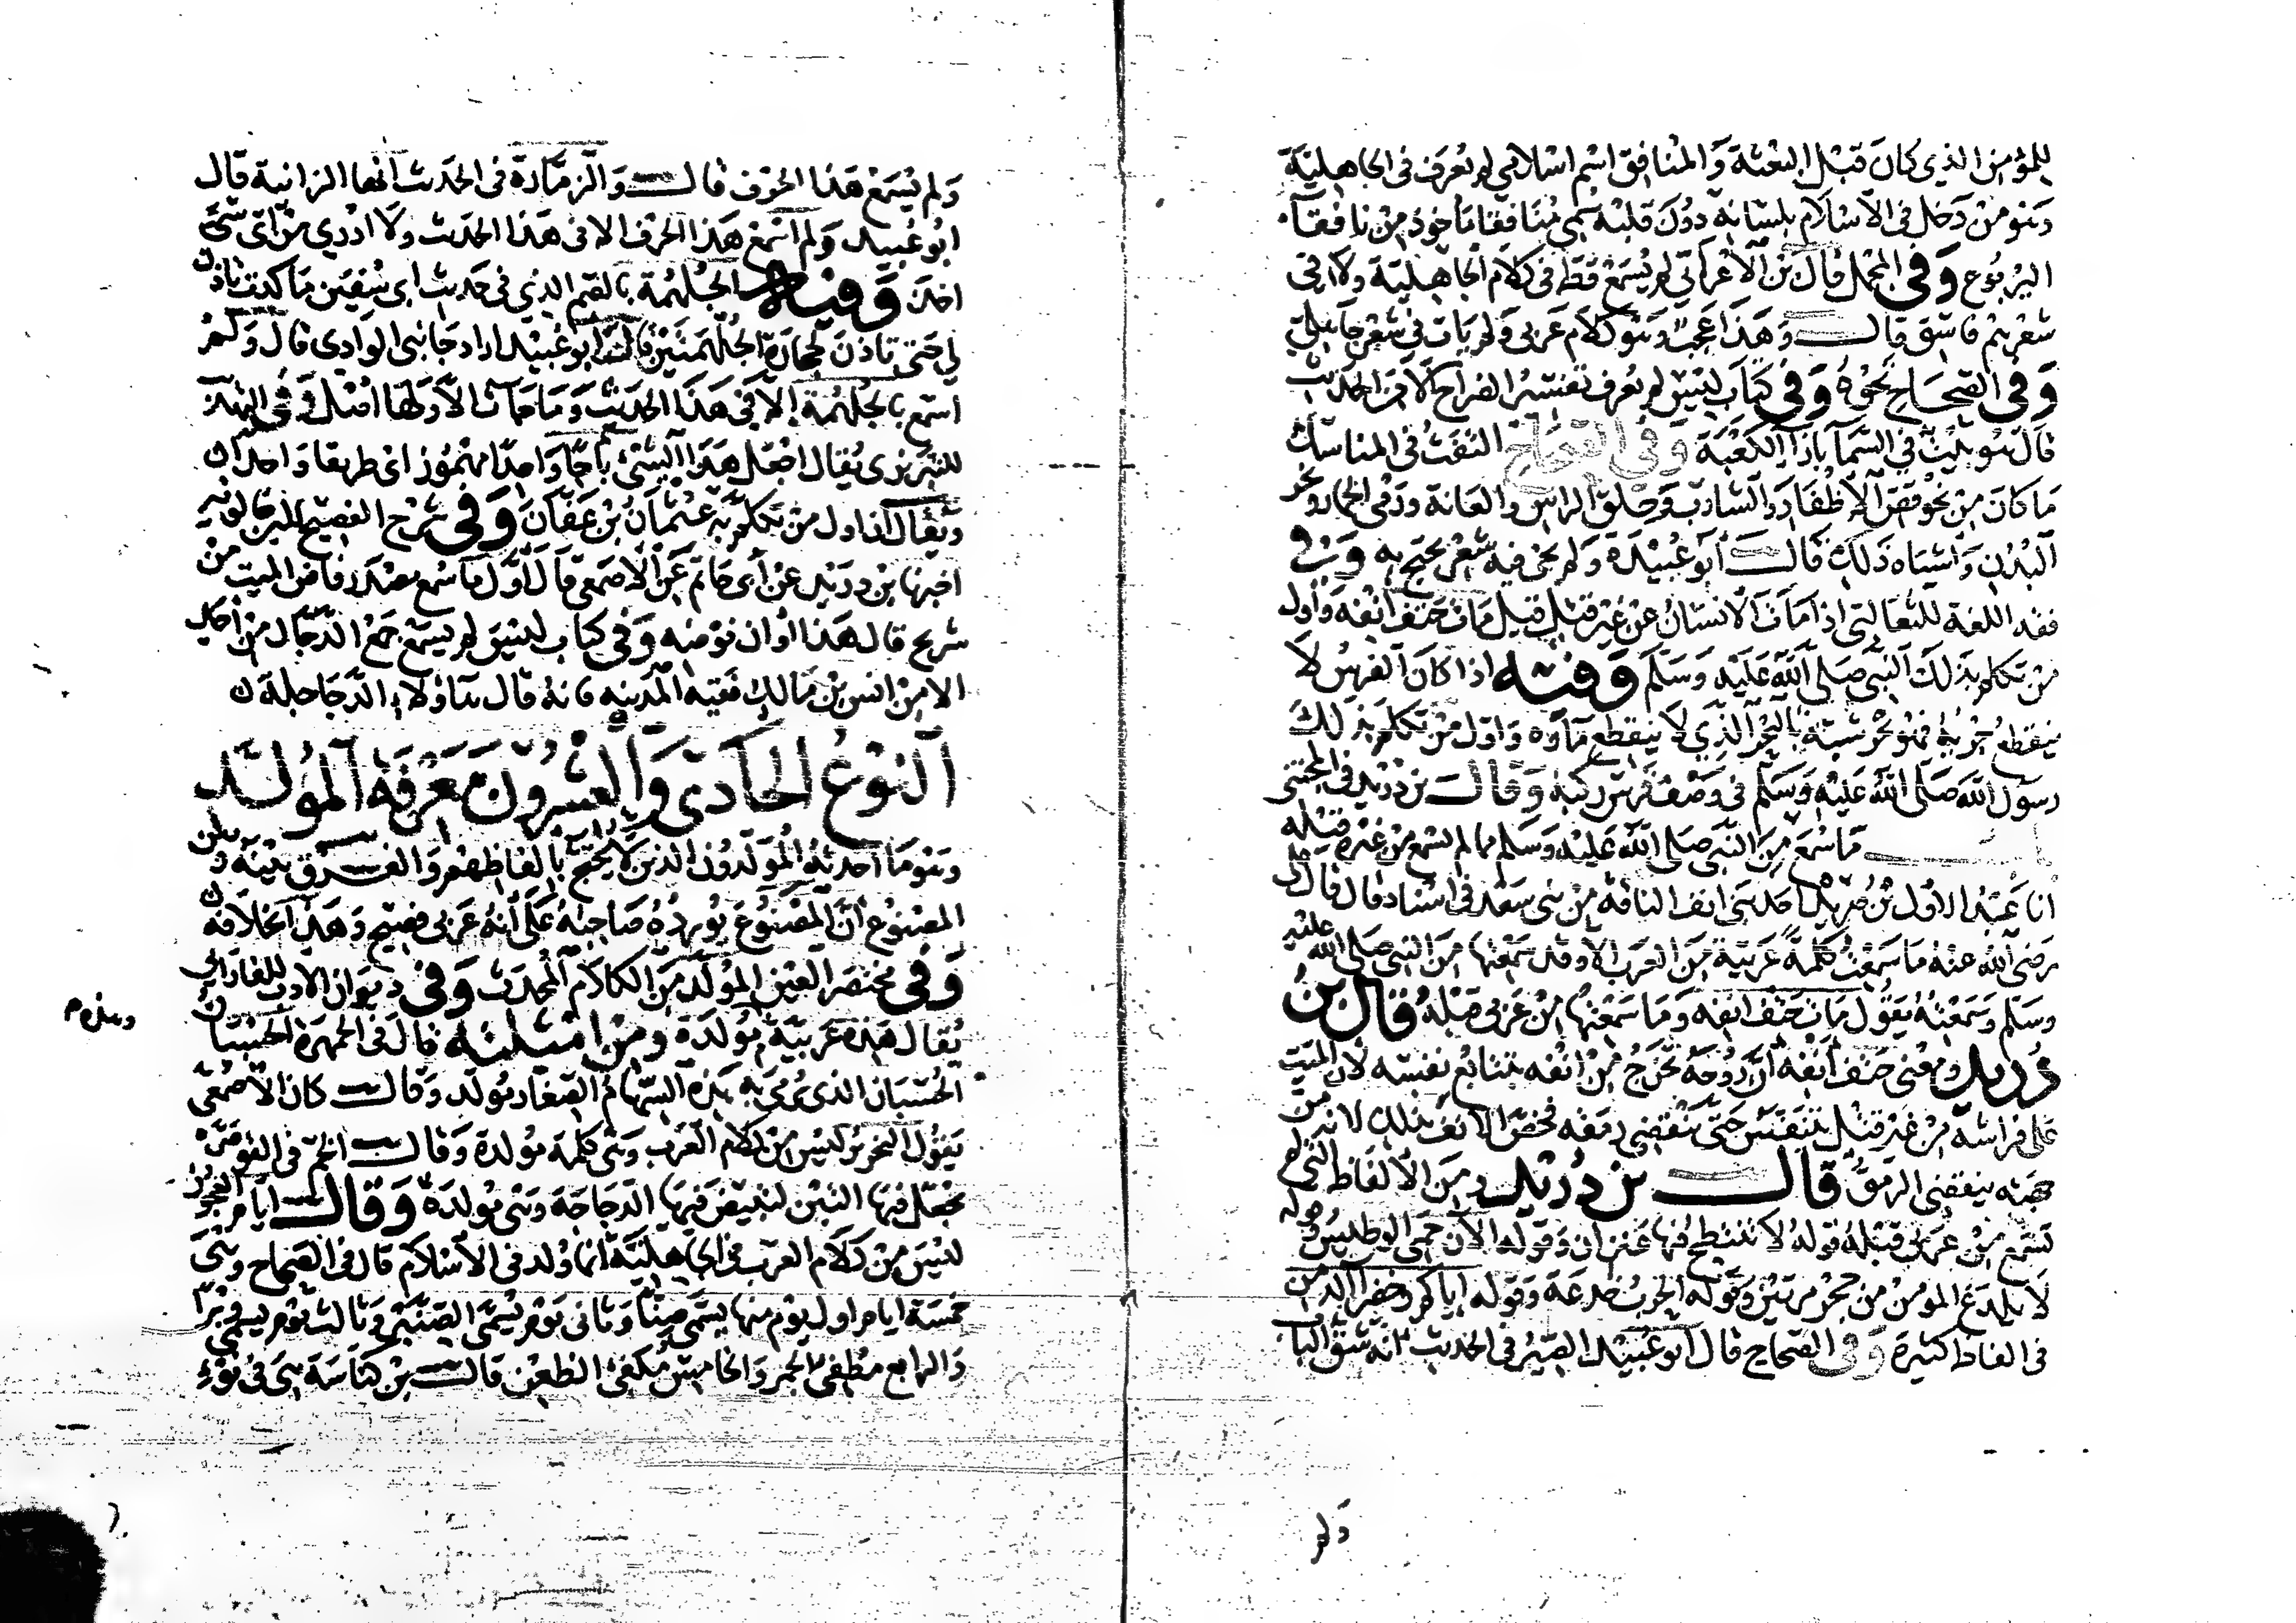 للمؤمن الذي كان قبل البعثة والمنافق اسم اسلامي لم يعرف في الجاهلية
وهو من دخل في الاسلام بلسانه دون قلبه سمي منافقا ماخوذ من نافقاء
اليربوع وفي المجمل قال بن الاعرابي لم يسمع قط في كلام الجاهلية ولا في
شعرهم فاسق قال وهذا عجب وهو كلام عربي ولم يات في شعر جاهلي
وفي الصحاح نحوه وفي كتاب ليس لم يعرف تفسير الضراح الا من الحديث
قال هو بيت في السما بازا الكعبة وفي الصحاح التفث في المناسك
ما كان من نحو قص الاظفار والشارب وحلق الراس والعانة ورمي الجمار ونحر
البدن واشباه ذلك قال ابو عبيدة ولم يجي فيه شعر يحتج به وفي
فقه اللغة للثعالبي اذا مات الانسان عن غير قتل قيل مات حتف انفه واول
من تكلم بذلك النبي صلى الله عليه وسلم وفيه اذا كان الفرس لا
ينقطع جريه فهو بحر شبه بالبحر الذي لا ينقطع ماوه واول من تكلم بذلك
رسول الله صلى الله عليه وسلم في وصف فرس ركبه وقال بن دريد في المجتنى
ما سمع من النبي صلى الله عليه وسلم مما لم يسمع من غيره قبله
انا عبد الاول بن مريد حدثني انف الناقة من بني سعد في اسناد قال قال علي
رضي الله عنه ما سمعت كلمة عربية من العرب الا وقد سمعتها من النبي صلى الله عليه
وسلم وسمعته يقول مات حتف انفه وما سمعتها من عربي قبله قال بن
دريد ومعنى حتف انفه ان روحه تخرج من انفه بتتابع نفسه لان الميت
على فراشه من غير قتل يتنفس حتى ينقضي رمقه فخص الانف بذلك لانه من
جهته ينقضي الرمق قال بن دريد ومن الالفاظ التي لم
تسمع من عربي قبله قوله لا تنتطح فيها عنزان وقوله الان حمي الوطيس وقوله
لا يلدغ المؤمن من جحر مرتين وقوله الحرب خدعة وقوله اياكم وخضراء الدمن
في الفاظ كثيرة وفي الصحاح قال ابو عبيد الصير في الحديث انه شق الباب
ولم
ولم يسمع هذا الحرف قال والزمارة في الحديث انها الزانية قال
ابو عبيد ولم اسمع هذا الحرف الا في هذا الحديث ولا ادري من اي شئ
اخذ وفيه الجلهمة بالضم الذي في حديث ابي سفين ما كدت تاذن
لي حتى تاذن لحجارة الجلهمتين قال ابو عبيد اراد جانبي الوادي قال ولم
اسمع بالجلهمة الا في هذا الحديث وما جات الا ولها اصل وفي تهذيب
للتبريزي يقال اجعل هذا الشئ باجا واحدا مهموز اي طريقا واحدا
ويقال ان اول من تكلم به عثمان بن عفان وفي شرح الفصيح لابن خالويه
اخبرنا بن دريد عن ابي حاتم عن الاصمعي قال اول ما سمع مصدر فاض الميت من
شريح قال هذا اوان فوضه وفي كتاب ليس لم يسمع جمع الدجال من احد
الا من انس بن مالك فقيه المدينه فانه قال هاولاء الدجاجلة
النوع الحادي والعشرون معرفة المولد
وهو ما احدثه المولدون الذين لا يحتج بالفاظهم والفرق بينه وبين
المصنوع ان المصنوع يورده صاحبه على انه عربي فصيح وهذا بخلافه
وفي مختصر العين المولد من الكلام المحدث وفي ديوان الادب للفارابي
يقال هذه عربية وهذه مولدة ومن امثلته قال في الجمهرة الحسبان
الحسبان الذي يرمى به هذه السهام الصغار مولد وقال كان الاصمعي
يقول النحرير ليس من كلام العرب وهي كلمة مولدة وقال الخم في القوصرة
يجعل فيها التبن لتبيض فيها الدجاجة وهي مولدة وقال ايام العجوز
ليس من كلام العرب في الجاهلية انما ولد في الاسلام قال في الصحاح وهي
خمسة ايام اول يوم منها يسمى صنا وثاني يوم يسمى الصنبر وثالث يوم يسمى وبرا
والرابع مطفئ الجمر والخامس مكفئ الظعن قال بن كناسة هي في نوء
وهذه م